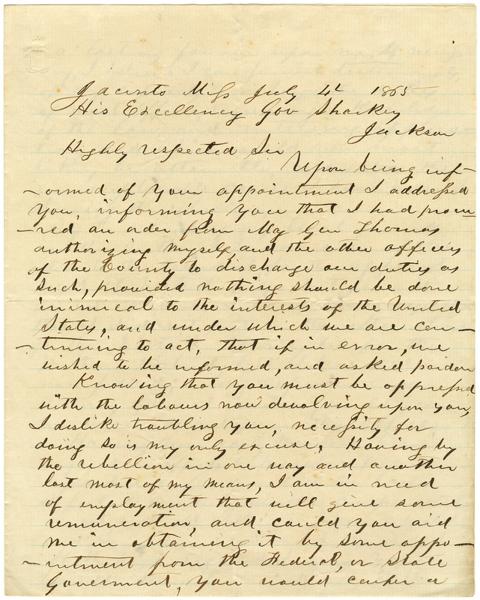 Jacinto Miss July 4t 1865
His Excellency Gov Sharkey
Jackson
Highly respected Sir
Upon being inf-
-ormed of your appointment I addressed
you, informing you that I had procu-
-red an order from Maj Gen Thomas
authorizing myself and the other officers
of the County to discharge our duties as
such, provided nothing should be done
inimical to the interests of the United
States, and under which we are con-
-tinuing to act, that if in error, we
wished to be informed, and asked pardon
Knowing that you must be oppressed
with the labours now devolving upon you,
I dislike troubling you, necessity for
doing so is my only excuse, Having by
the rebellion in one way and another
lost most of my means, I am in need
of employment that will give some
remuneration, and could you aid
me in obtaining it by some appo-
-intment from the Federal, or State
Goverment, you would confer a